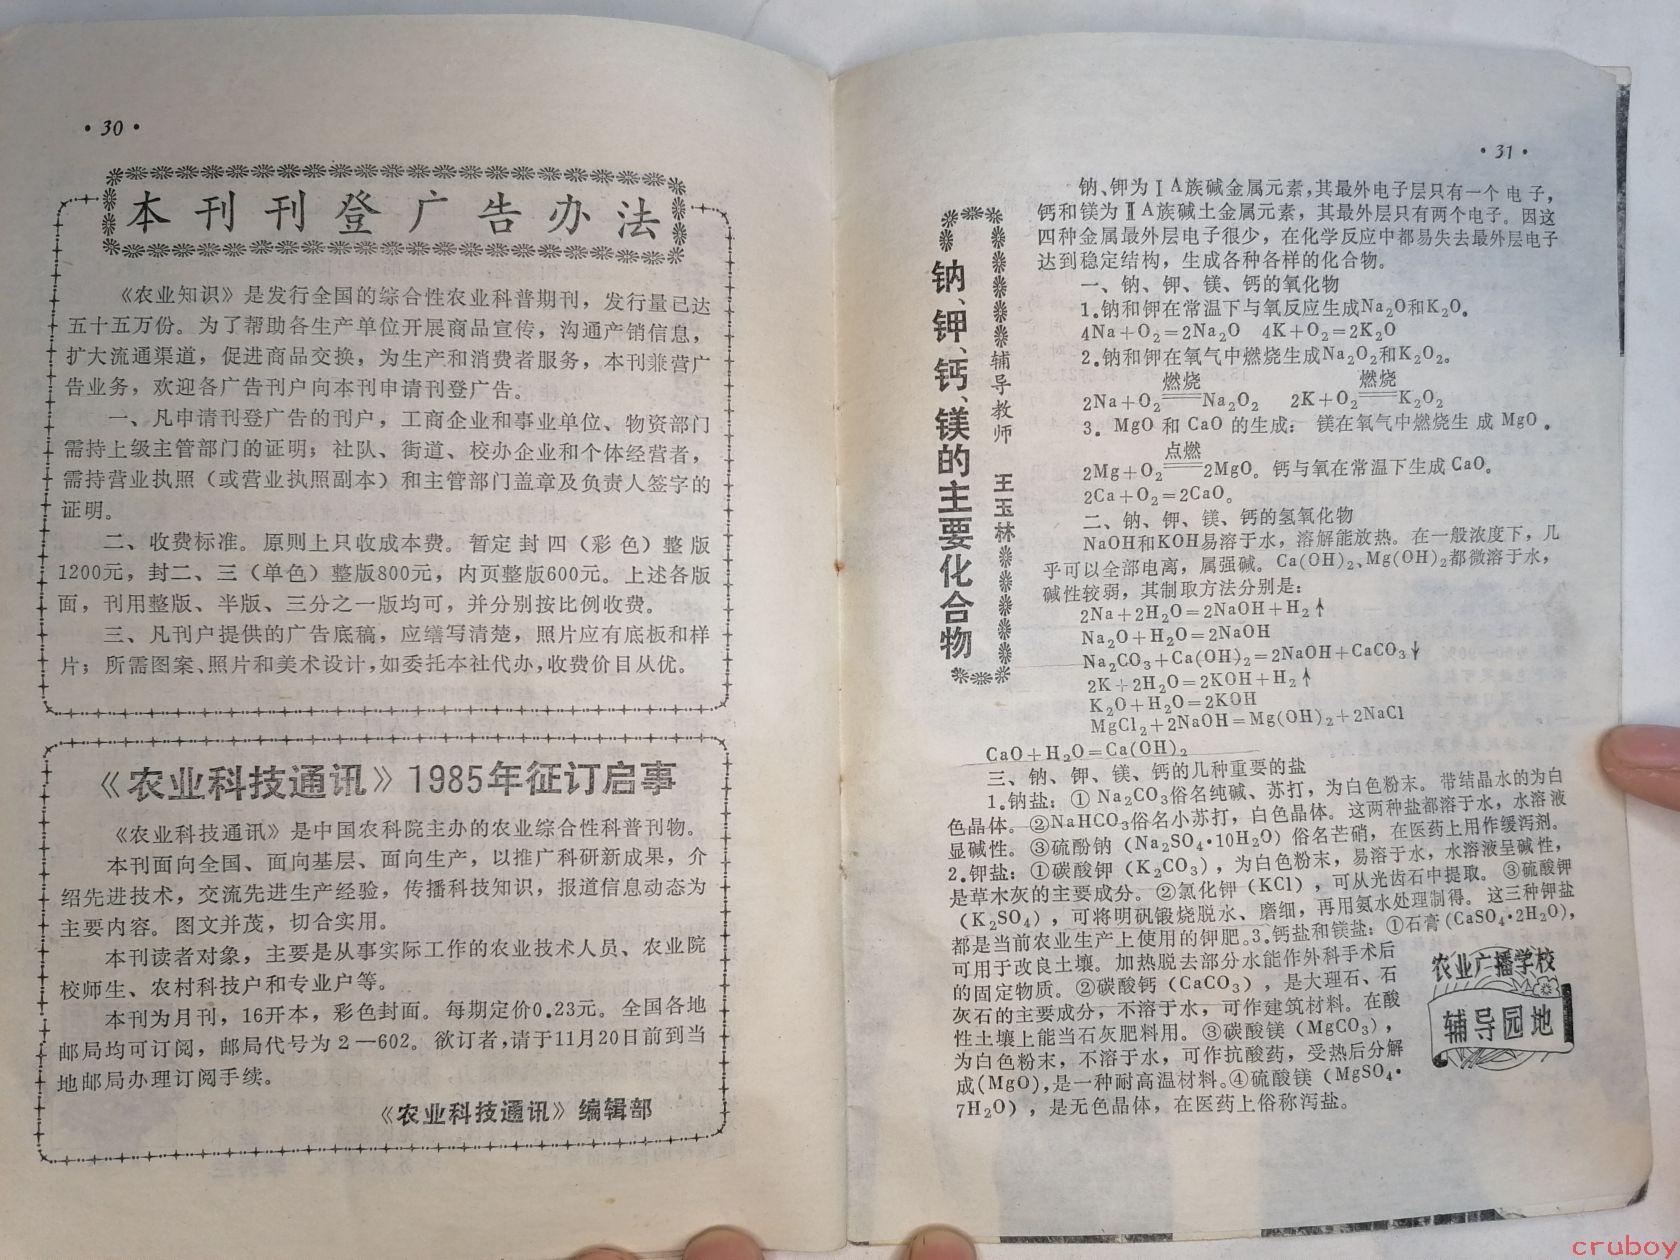 • 30 •
本刊刊登广告办法
《农业知识》是发行全国的综合性农业科普期刊，发行量已达
五十五万份。为了帮助各生产单位开展商品宣传，沟通产销信息，
扩大流通渠道，促进商品交换，为生产和消费者服务，本刊兼营广
告业务，欢迎各广告刊户向本刊申请刊登广告。
一、凡申请刊登广告的刊户，工商企业和事业单位、物资部门
需持上级主管部门的证明；社队、街道、校办企业和个体经营者，
需持营业执照（或营业执照副本）和主管部门盖章及负责人签字的
证明。
二、收费标准。原则上只收成本费。暂定封四（彩色）整版
1200元，封二、三（单色）整版800元，内页整版600元。上述各版
面，刊用整版、半版、三分之一版均可，并分别按比例收费。
三、凡刊户提供的广告底稿，应缮写清楚，照片应有底板和样
片；所需图案、照片和美术设计，如委托本社代办，收费价目从优。
《农业科技通讯》1985年征订启事
《农业科技通讯》是中国农科院主办的农业综合性科普刊物。
本刊面向全国、面向基层、面向生产，以推广科研新成果，介
绍先进技术，交流先进生产经验，传播科技知识，报道信息动态为
主要内容。图文并茂，切合实用。
本刊读者对象，主要是从事实际工作的农业技术人员、农业院
校师生、农村科技户和专业户等。
本刊为月刊，16开本，彩色封面。每期定价0.23元。全国各地
邮局均可订阅，邮局代号为2—602。欲订者，请于11月20日前到当
地邮局办理订阅手续。
《农业科技通讯》编辑部
• 31 •
钠、钾、钙、镁的主要化合物
辅导教师 王玉林
钠、钾为ⅠA族碱金属元素，其最外电子层只有一个电子，
钙和镁为ⅡA族碱土金属元素，其最外层只有两个电子。因这
四种金属最外层电子很少，在化学反应中都易失去最外层电子
达到稳定结构，生成各种各样的化合物。
一、钠、钾、镁、钙的氧化物
1.钠和钾在常温下与氧反应生成Na₂O和K₂O。
4Na+O₂=2Na₂O 4K+O₂=2K₂O
2.钠和钾在氧气中燃烧生成Na₂O₂和K₂O₂。
燃烧 燃烧
2Na+O₂══Na₂O₂ 2K+O₂══K₂O₂
3. MgO 和 CaO 的生成：镁在氧气中燃烧生成MgO。
点燃
2Mg+O₂══2MgO。钙与氧在常温下生成CaO。
2Ca+O₂=2CaO。
二、钠、钾、镁、钙的氢氧化物
NaOH和KOH易溶于水，溶解能放热。在一般浓度下，几
乎可以全部电离，属强碱。Ca(OH)₂、Mg(OH)₂都微溶于水，
碱性较弱，其制取方法分别是：
2Na+2H₂O=2NaOH+H₂↑
Na₂O+H₂O=2NaOH
Na₂CO₃+Ca(OH)₂=2NaOH+CaCO₃↓
2K+2H₂O=2KOH+H₂↑
K₂O+H₂O=2KOH
MgCl₂+2NaOH=Mg(OH)₂+2NaCl
CaO+H₂O=Ca(OH)₂
三、钠、钾、镁、钙的几种重要的盐
1.钠盐：①Na₂CO₃俗名纯碱、苏打，为白色粉末。带结晶水的为白
色晶体。②NaHCO₃俗名小苏打，白色晶体。这两种盐都溶于水，水溶液
显碱性。③硫酚钠（Na₂SO₄·10H₂O）俗名芒硝，在医药上用作缓泻剂。
2.钾盐：①碳酸钾（K₂CO₃），为白色粉末，易溶于水，水溶液呈碱性，
是草木灰的主要成分。②氯化钾（KCl），可从光齿石中提取。③硫酸钾
（K₂SO₄），可将明矾锻烧脱水、磨细，再用氨水处理制得。这三种钾盐
都是当前农业生产上使用的钾肥。3.钙盐和镁盐：①石膏(CaSO₄·2H₂O)，
可用于改良土壤。加热脱去部分水能作外科手术后
的固定物质。②碳酸钙（CaCO₃），是大理石、石
灰石的主要成分，不溶于水，可作建筑材料。在酸
性土壤上能当石灰肥料用。③碳酸镁（MgCO₃），
为白色粉末，不溶于水，可作抗酸药，受热后分解
成(MgO)，是一种耐高温材料。④硫酸镁（MgSO₄·
7H₂O），是无色晶体，在医药上俗称泻盐。
农业广播学校
辅导园地
cruboy